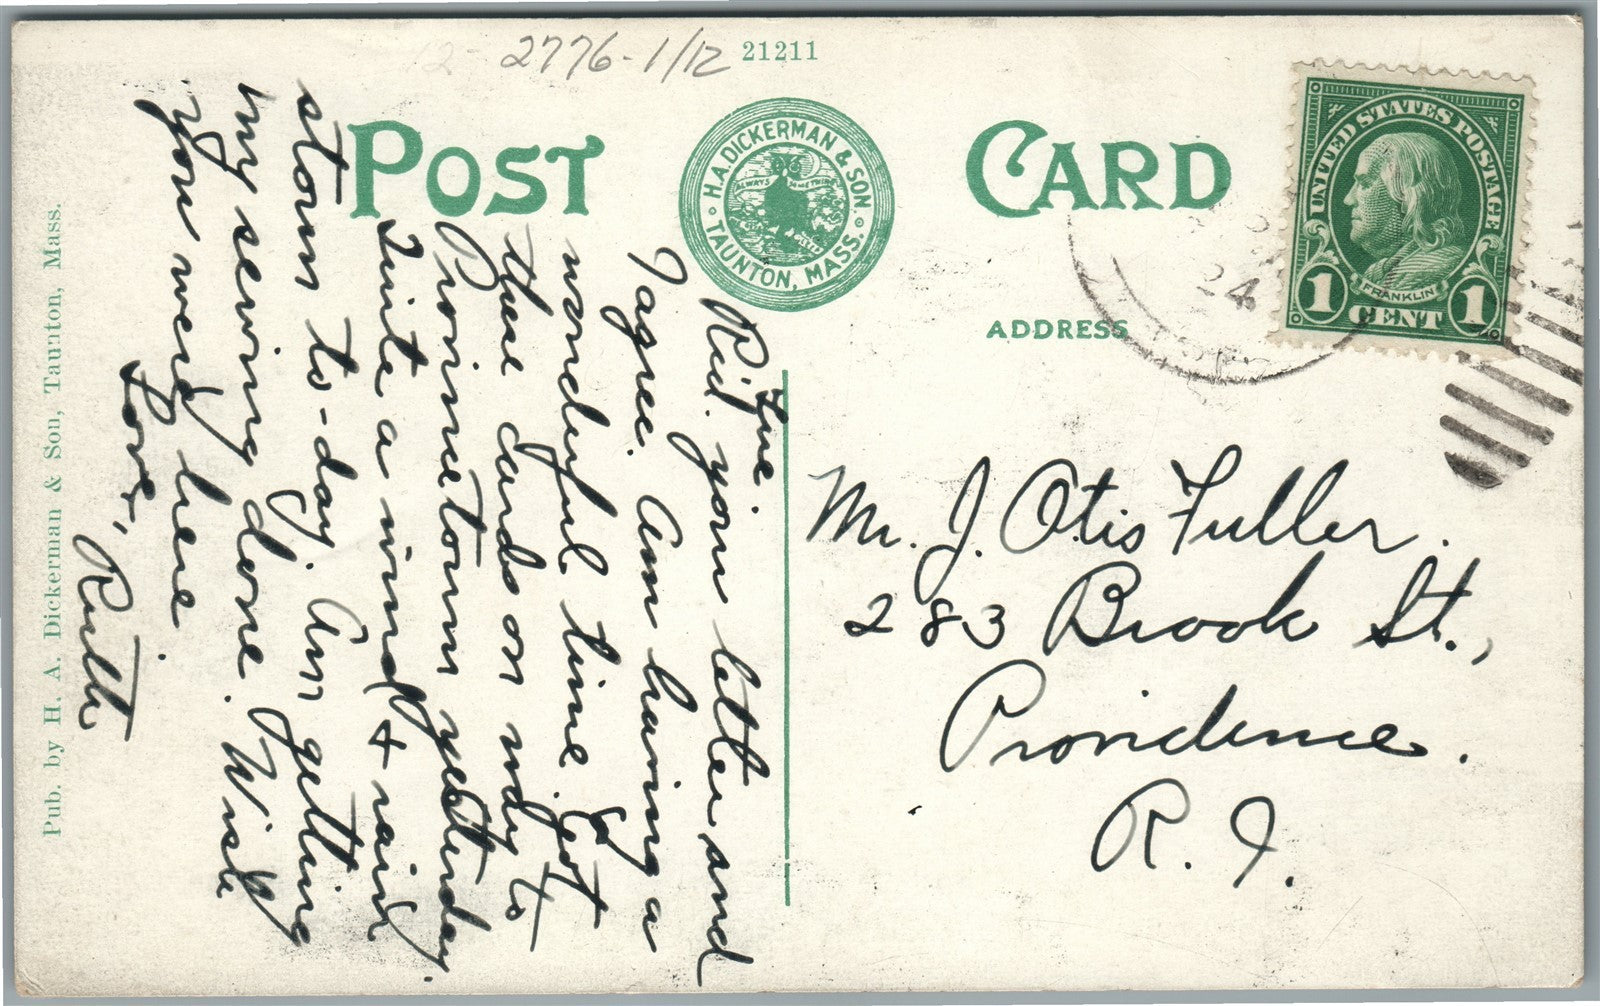 2776-1/12 21211
POST CARD
H.A. DICKERMAN & SON.
TAUNTON, MASS.
ALWAYS
UNITED STATES POSTAGE
FRANKLIN
1 CENT 1
24
ADDRESS
Tue.
Rec'd. your letter and
I agree. Am having a
wonderful time. Got
these cards on way to
Provincetown yesterday.
Quite a wind & rain
storm to-day. Am getting
my sewing done. Wish
you were here
Love,
Ruth
Mr. J. Otis Fuller.
283 Brook St.,
Providence.
R. I.
Pub. by H. A. Dickerman & Son, Taunton, Mass.